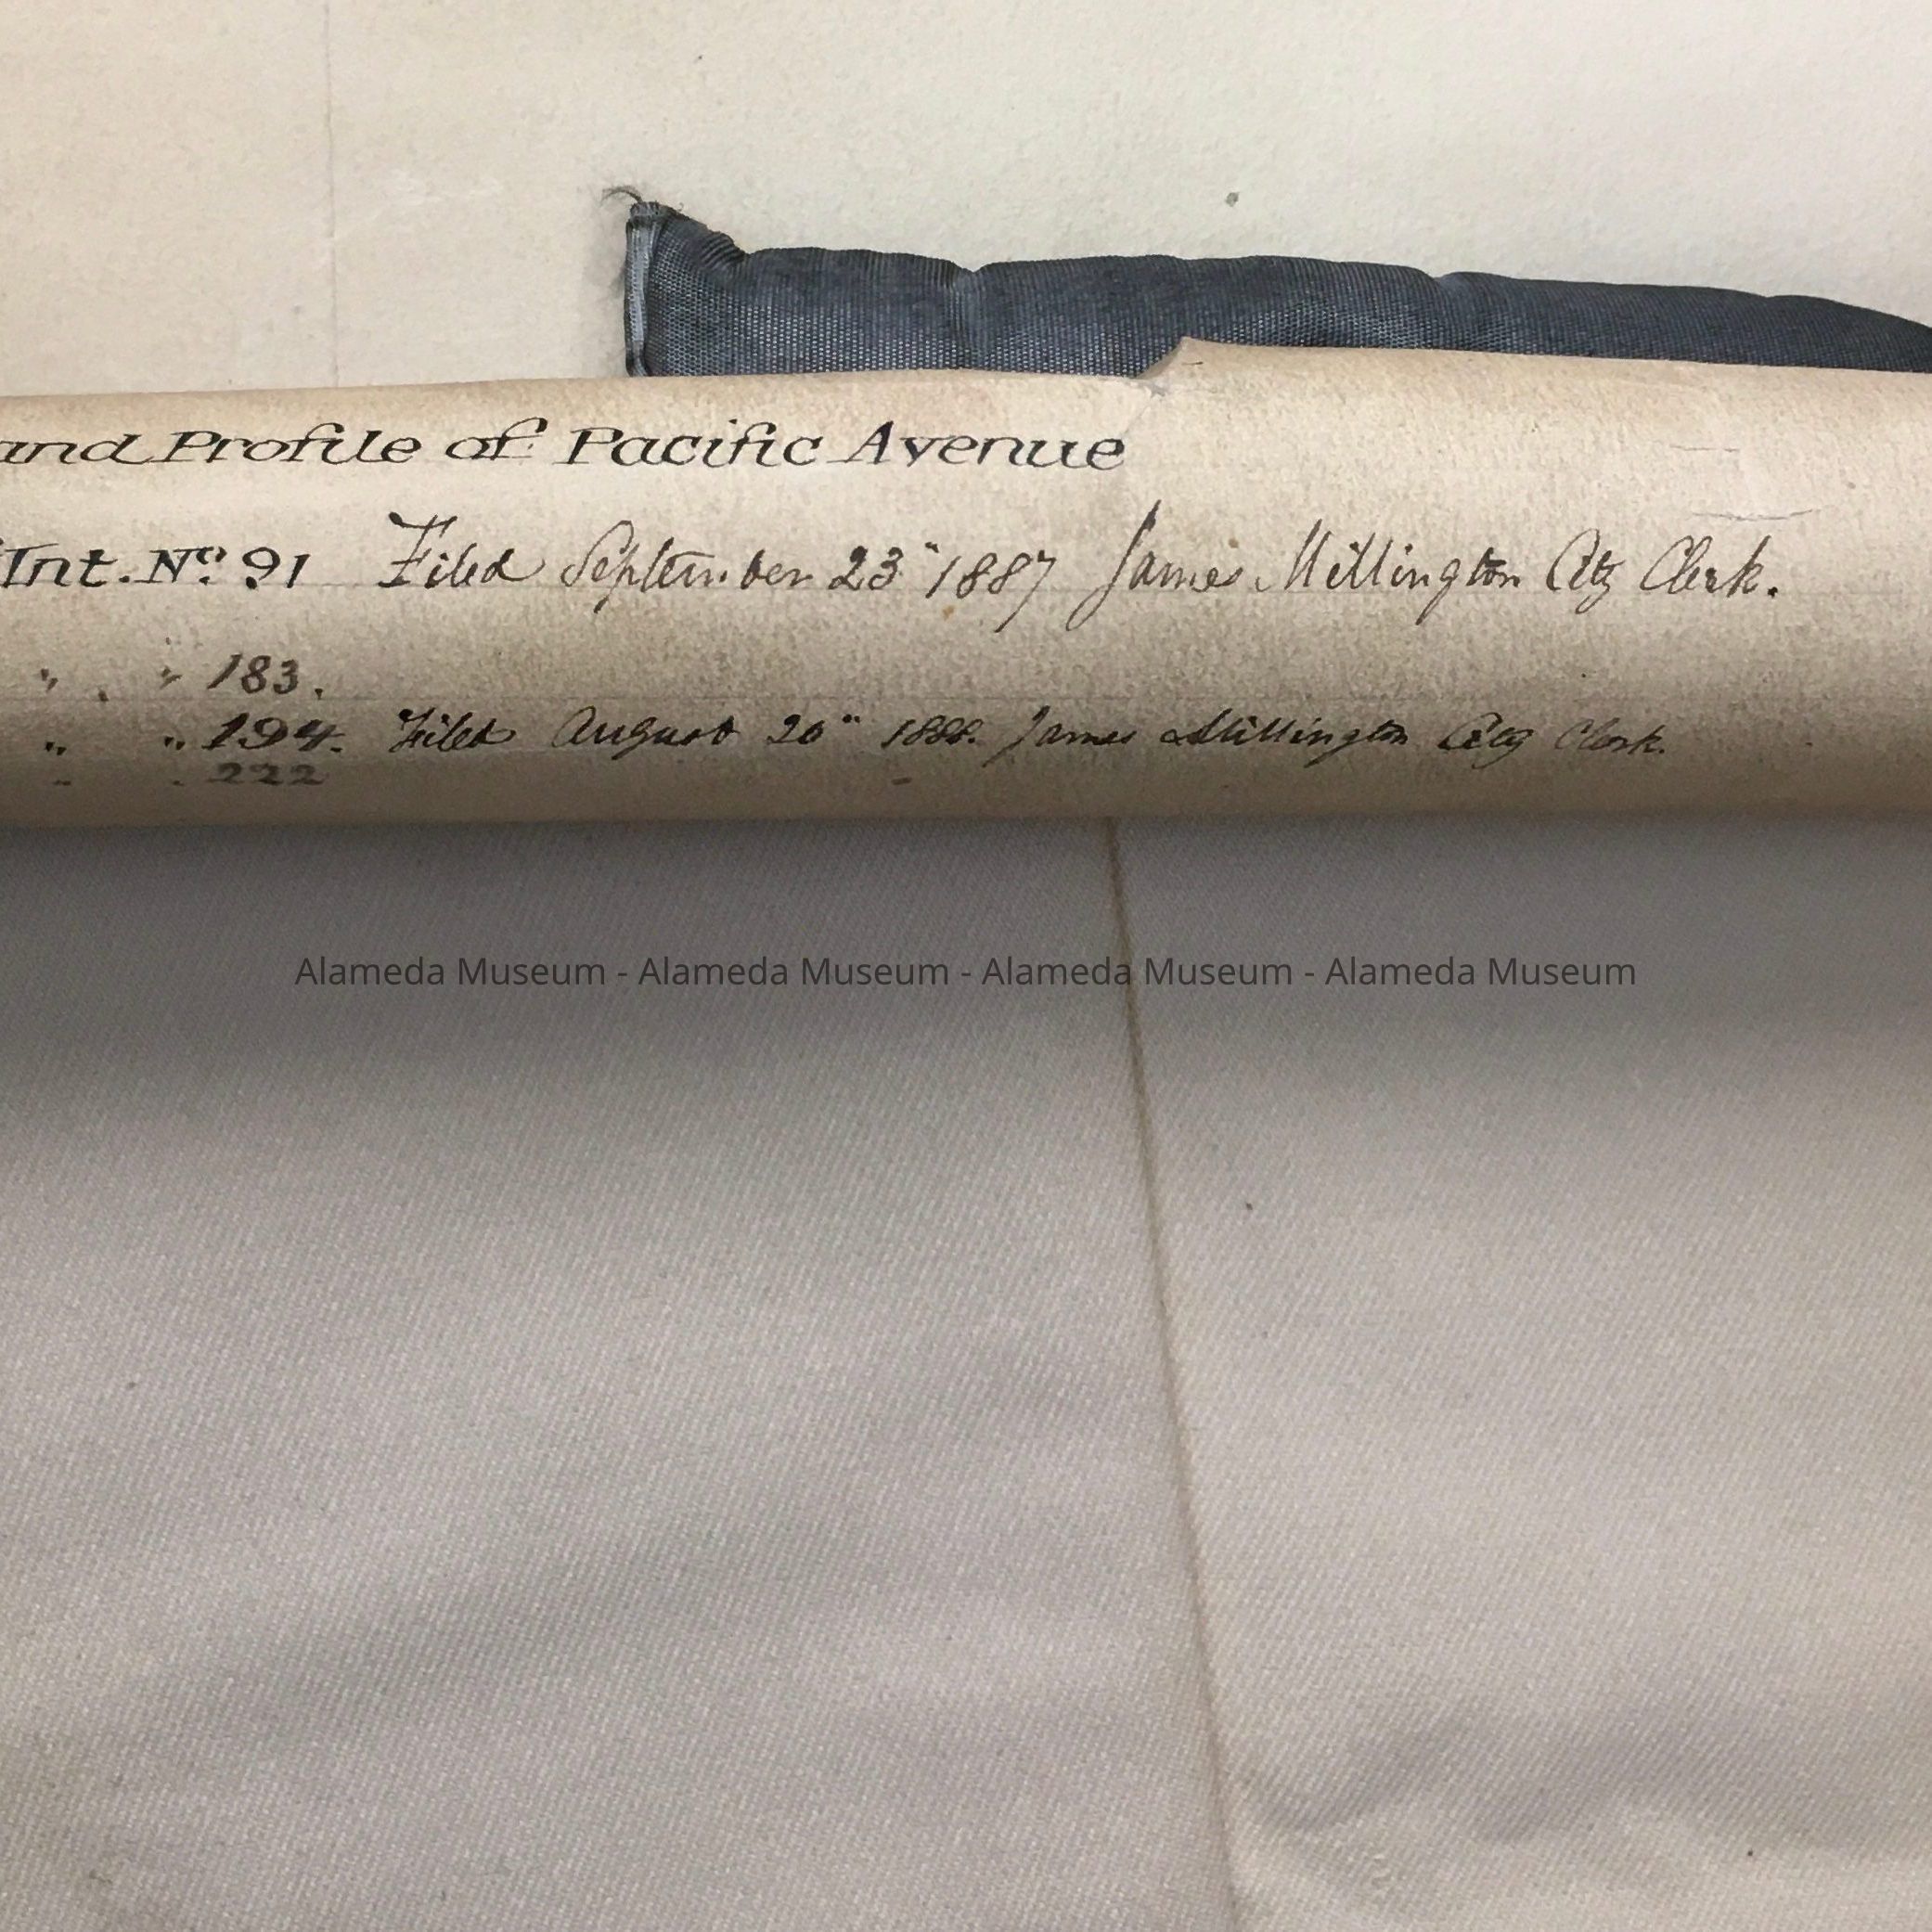 and Profile of Pacific Avenue
Int. No. 91 Filed September 23" 1887 James Millington City Clerk.
" " 183.
" " 194. Filed August 20" 1888. James Millington City Clerk.
" " 222
Alameda Museum - Alameda Museum - Alameda Museum - Alameda Museum